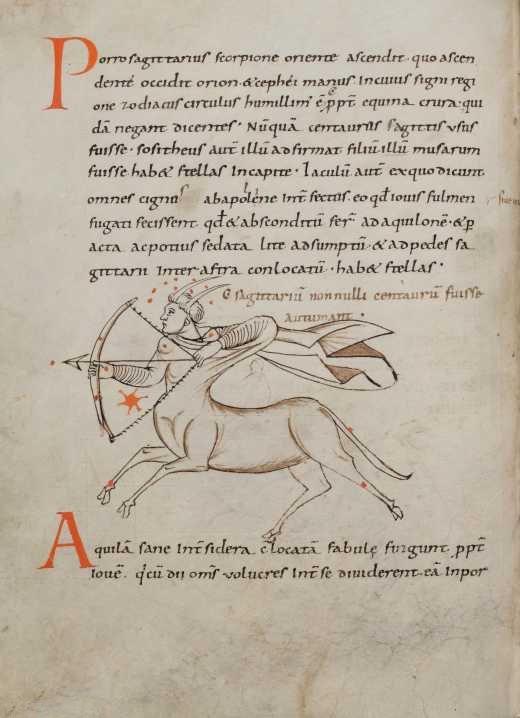 Porro sagittarius scorpione oriente ascendit · quo ascen
dente occidit orion · & cephei manus · In cuius signi regi
one zodiacus circulus humillim' ē ppt̄ equina crura · qui
dā negant dicentes · Nūquā centaurus sagittis usus
fuisse · sositheus aut̄ illū adfirmat filiū illū musarum
fuisse hab& stellas in capite · Iaculū aut̄ ex quo dicunt
omnes cignus ab apolline int̄fectus · eo qđ iouis fulmen
fugati fecissent qđ & absconditū fer̄ ad aquilonē · & p
acta ac potius sedata lite adsumptū · & ad pedes sa
gittarii inter astra conlocatū · hab& stellas ·
sagittariū nonnulli centaurū fuisse
autumant ·
Aquilā sane int̄ sidera c̄locatā fabulę fingunt ppt̄
iouē · q'cū dii om̄s uolucres int̄ se diuiderent · eā in por